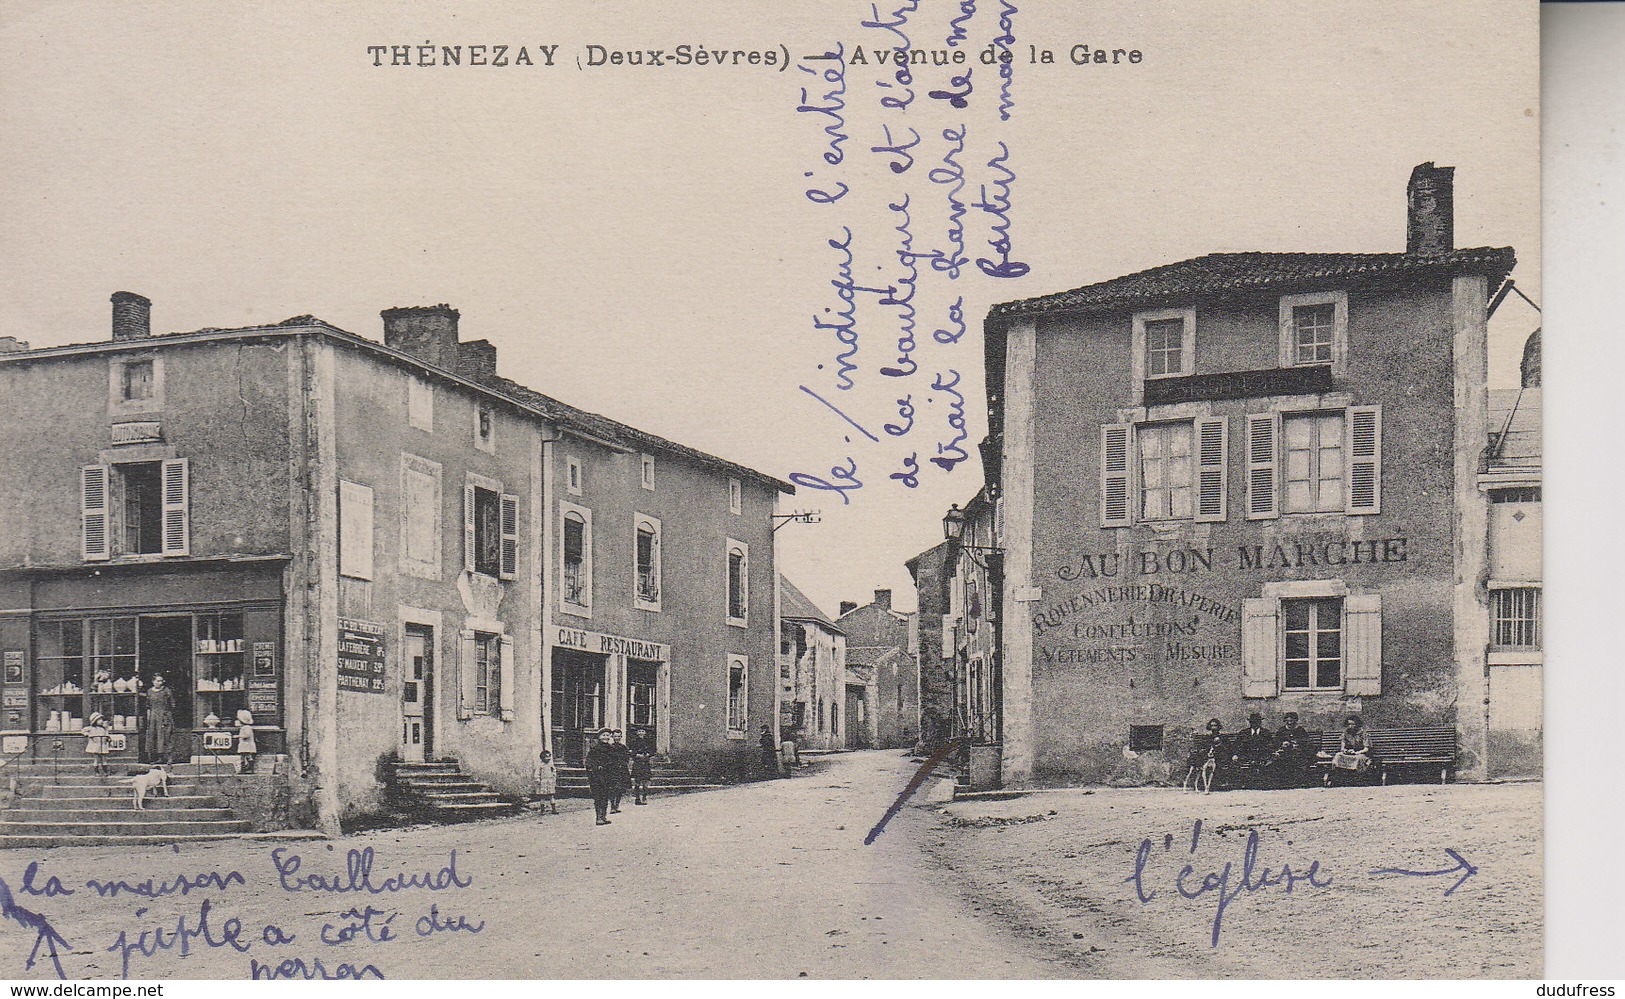 THÉNEZAY (Deux-Sèvres) Avenue de la Gare
le / indique l'entrée
de la boutique et l'autre
trait la chambre de ma
futur maison
CAFÉ RESTAURANT
LA FERRIÈRE
St MAIXENT
PARTHENAY
KUB
KUB
AU BON MARCHÉ
ROUENNERIE DRAPERIE
CONFECTIONS
VÊTEMENTS SUR MESURE
l'église →
la maison Taillaud
juste a côté du
perron
www.delcampe.net
dudufress